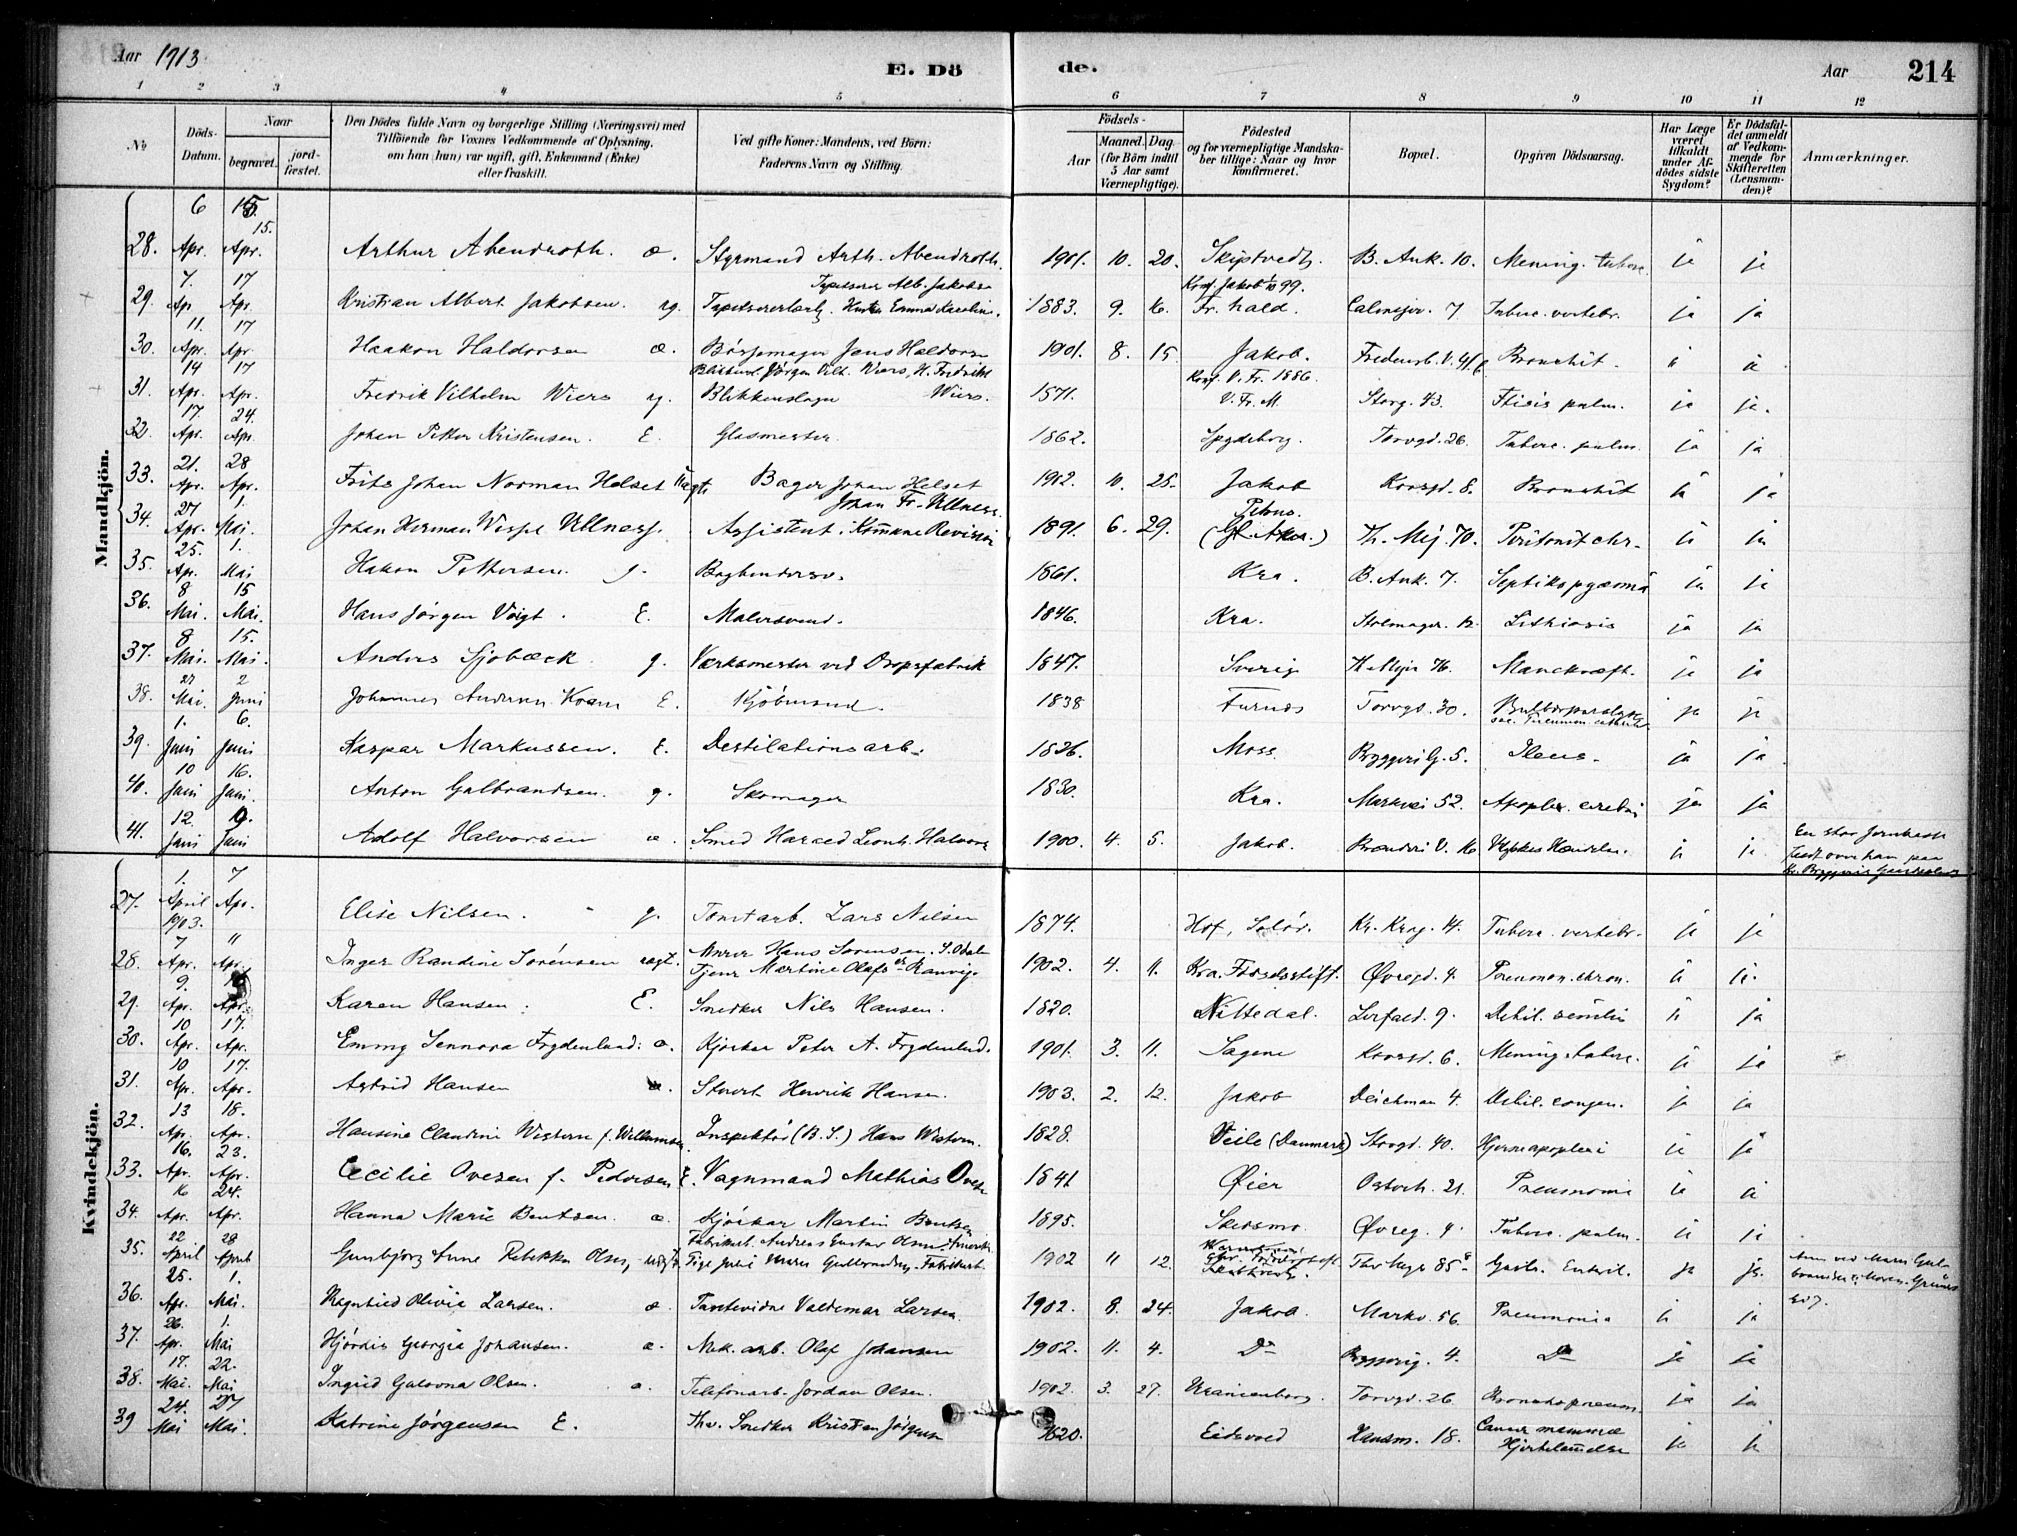 Aar 1913. E. Dö de. Aar 214
1 2 3 4 5 6 7 8 9 10 11 12
No Döds-Datum. Naar begravet. jord-fæstet. Den Dödes fulde Navn og borgerlige Stilling (Næringsvei) med Tilföiende for Voxnes Vedkommende af Oplysning, om han (hun) var ugift, gift, Enkemand (Enke) eller fraskilt. Ved gifte Koner: Mandens, ved Börn: Faderens Navn og Stilling. Födsels- Aar Maaned. Dag. (for Börn indtil 5 Aar samt Værnepligtige). Födested og for værnepligtige Mandskaber tillige: Naar og hvor konfirmeret. Bopæl. Opgiven Dödsaarsag. Har Læge været tilkaldt under Afdödes sidste Sygdom? Er Dödsfaldet anmeldt af Vedkommende for Skifteretten (Lensmanden)? Anmærkninger.
Mandkjön.
28. 6 Apr. 15. Apr. Arthur Abendroth. æ. Styrmand Arth. Abendroth. 1901. 10. 20. Skiptvedt. B. Ank. 10. Mening. tuberc. ja ja
29. 7. Ap. 17 Apr. Kristian Albert Jakobsen. ug. Tapetserer Alb. Jakobsen Emma Karoline. 1883. 9. 16. Konf. Jakob 99. Fr. hald. 7 Tuberc. vertebr. ja ja
30. 11. Apr. 17 Apr. Haakon Haldorsen æ. Börstemager Jens Haldorsen 1901. 8. 15 Jakob. Fredensb. V. 41 Bronchit. ja ja
31. 14 Apr. 17 Apr. Fredrik Vilhelm Wiers ug. Blikkensl. Jörgen Vilh. Wiers, H. Fredrikke Wiers. Blikkenslager 1871. Konf. V. Fr. 1886. V. Fr. M. Storg. 43. Ftisis pulm. ja ja.
32. 17. Apr. 24. Apr. Johan Petter Kristensen. E. Glasmester. 1862. Spydeberg. Torvgd. 26. Tuberc. pulm. ja ja
33. 21. Apr. 28 Apr. Frits Johan Norman Helset uægt. Bager Johan Helset 1912. 10. 25. Jakob Korsgd. 8. Bronchit ja ja
34. 27 Apr. 1. Mai. Johan Herman Ullness. Johan Fr. Ullness. Assistent i Komune Revision 1891. 6. 29. Petrus. (Gl. Aker.) Th. Mej. 70. Peritonit chr. ja ja
35. 25. Ap. 1. Mai Hakon Pettersen. g. Bogbindersv. 1861. Kra. B. Ank. 7. Septikopyæmi ja ja
36. 8 Mai. 15 Mai. Hans Jørgen Voigt. E. Malersvend. 1846. Kra. Stolmager. 12. Lithiasis ja ja
37. 8 Mai. 15. Mai. Anders Sjøbæck g. Værksmester ved Dropsfabrik 1847. Sverig Th. Mejer 76. Mavekræft. ja ja
38. 27 Mai. 2 Juni Johannes Andersen E. Kjöbmand. 1838 Furnes Torvgd. 30. Bulbærparalyse ja ja
39. 1. Juni 6. Juni Kaspar Markussen. E. Destilationsarb. 1826. Moss. Bryggeri G. 5. Ileus. ja ja
40. 10 Juni 16. Juni. Anton Gulbrandsen. g. Skomager 1830. Kra. Markvei 52. Apoplex. cerebri ja ja
41. 12. Juni 19. Juni Adolf Halvorsen æ. Smed Harald Leonh. Halvors 1900. 4. 5. Jakob. Brenneri V. 16 Ulykkes Hændelse. ja ja En stor Jernkasse over ham paa Bryggeris
Kvindekjön.
27. 1. April 1903. 7 Apr. Elise Nilsen. g. Tomtarb. Lars Nilsen 1874. Hof, Solör. Kr. Krog. 14. Tuberc. vertebr. ja ja
28. 7 Apr. 11 Apr. Inger Randine Sörensen uægt. Murer Hans Sörensen. S. Odalen Tjen. Martine Olafs 1902. 4. 11. Kra. Födselsstift. Øvregd. 4. Pneumon. chron. ja ja.
29. 9. Apr. Apr. Karen Hansen. E. Snedker Nils Hansen. 1820. Nittedal. Lerfald. 9. Debil. senilis ja ja
30. 10 Apr. 17. Apr. Emmy Sennora Frydenlund. æ. Kjörkar Peter A. Frydenlund. 1901. 3. 11. Sagene Korsgd. 6. Mening. tuberc. ja ja
31. 10 Apr. 17. Apr. Astrid Hansen æ. Stuert Henrik Hansen. 1903. 2. 12. Jakob Deichman 4. Debil. congen. ja ja
32. 13 Apr. 18. Apr. Hansine Claudine Western f. Willumsen Inspektör (B. S.) Hans Western. 1828. Veile (Danmark) Storgd. 40. Hjerneapoplexi ja ja
33. 16. Apr. 23. Apr. Cecilie Ovesen f. Pedersen E. Vognmand Mathias Ovesen 1841 Øier Osterh. 21. Pneumoni ja ja
34. 16 Apr. 24. Apr. Hanna Marie Bentsen. æ. Kjörkar Martin Bentsen 1895. Skedsmo Øvreg. 4. Tuberc. pulm. ja ja
35. 22 April 28 April Gunbjørg Anne Rebekka Olsen, uægte Fabrikarb. Andreas Gustav Olsen Amerika. Pige Julie Marie Gulbrandsen. Fabrikarb. 1902 11 12. Thv. Mejer 85 Gastr. Enterit. ja ja.
36. 25. Apr. 1. Mai. Ragnhild Olivia Larsen. æ. Valdemar Larsen 1902. 8. 24. Jakob. Markv. 56. Pneumonia ja ja
37. 26. Apr. 1. Mai Hjördis Georgia Johansen. æ. Mek. arb. Olaf Johansen 1902. 11. 4. Do Bryggerig. 4. Do ja ja
38. 17. Mai. 22. Mai Ingrid Olsen. æ. Telefonarb. Jordan Olsen. 1902. 3. 27. Uranienborg. Torvgd. 26 Bronchopneum. ja ja
39 24. Mai 27 Mai. Katrine Jörgensen E. Thv. Snedker Kristian Jörgensen 1820. Eidsvold Hausm. 18. Cancer mammæ Hjertelammelse ja ja